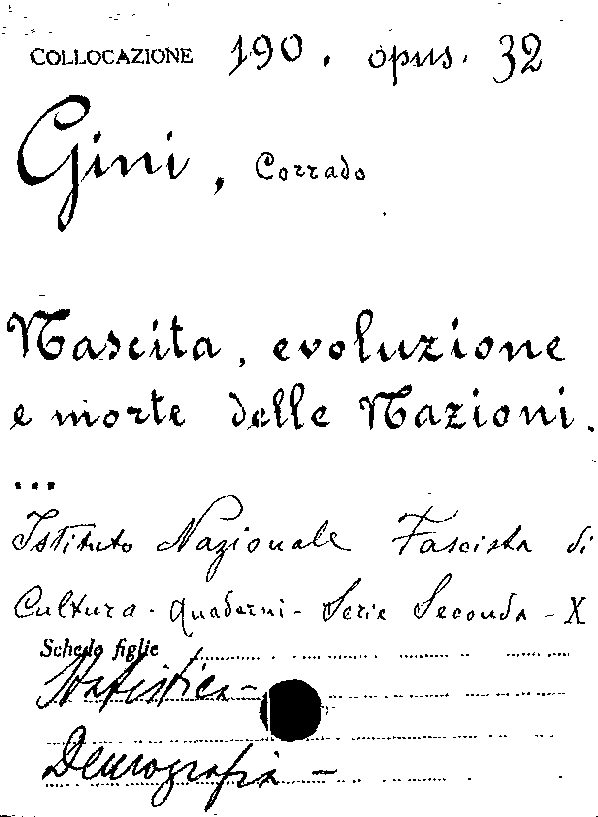 COLLOCAZIONE 190. opus. 32
Gini, Corrado
Nascita, evoluzione
e morte delle Nazioni.
...
Istituto Nazionale Fascista di
Cultura - Quaderni - Serie Seconda - X
Schede figlie
Statistica -
Demografia -